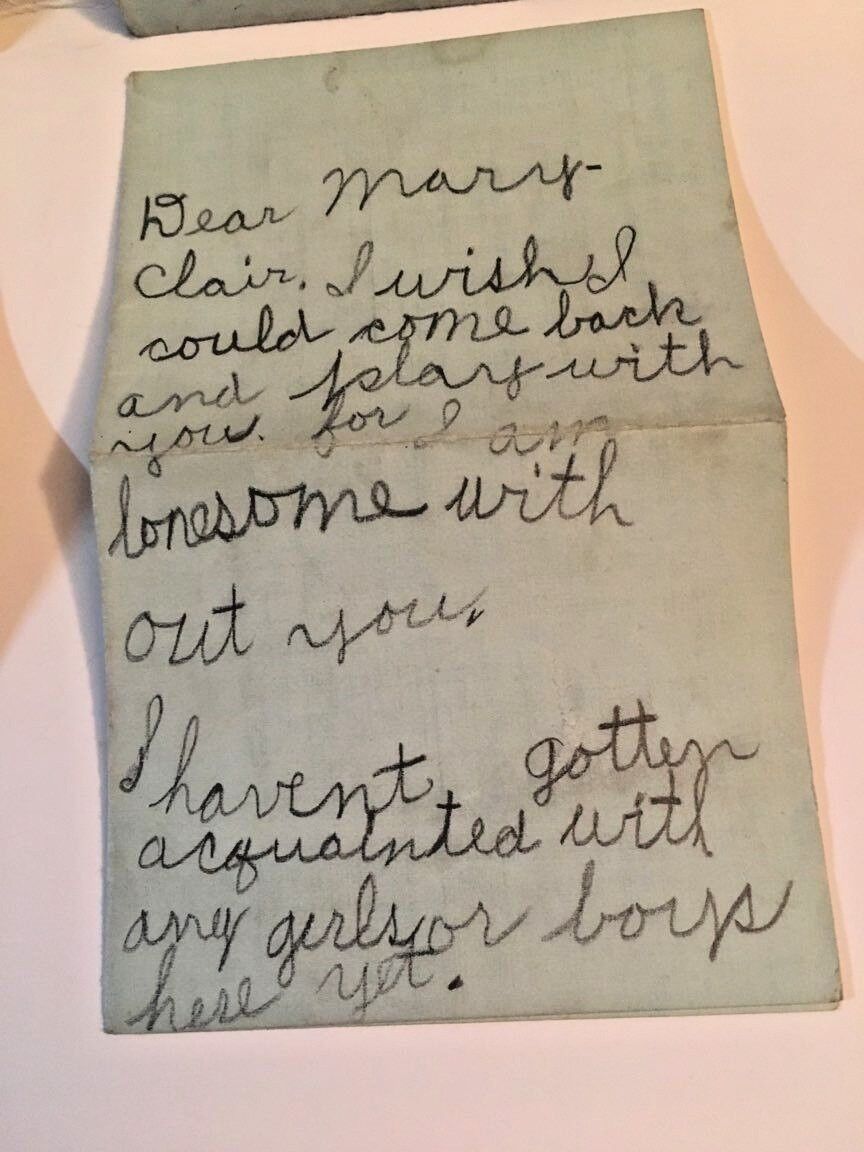 Dear Mary-
Clair. I wish I
could come back
and play with
you. for I am
lonesome with
out you.
I havent gotten
acquainted with
any girls or boys
here yet.